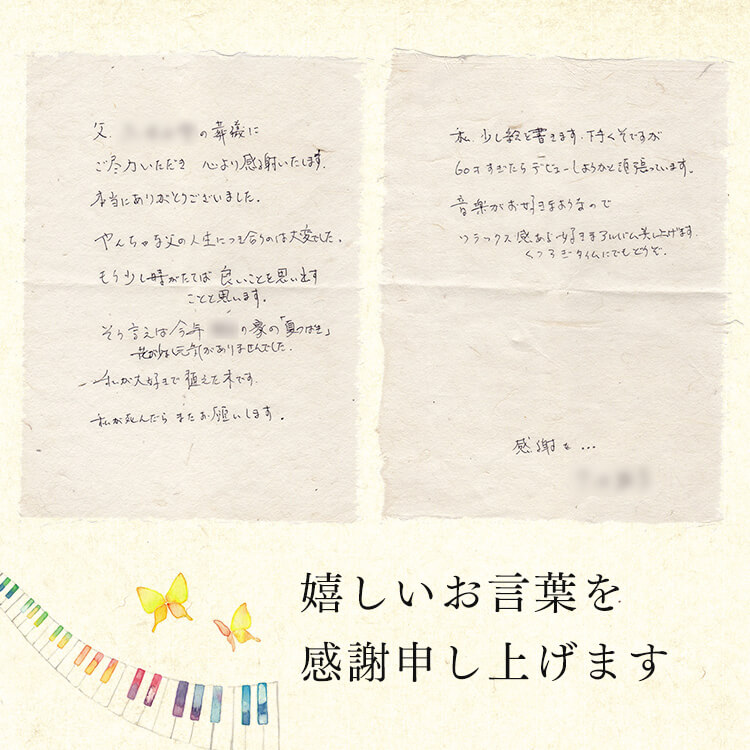 父 の葬儀に
ご尽力いただき 心より感謝いたします。
本当にありがとうございました。
やんちゃな父の人生につき合うのは大変でした。
もう少し時がたてば 良いことを思い出す
ことと思います。
そう言えば今年 の家の「夏つばき」
花が少し元気がありませんでした。
私が大好きで植えた木です。
私が死んだら またお願いします。
私、少し絵を書きます。下手くそですが
60才すぎたらデビューしようかと頑張っています。
音楽がお好きなようなので
リラックス感ある好きなアルバム差し上げます。
くつろぎタイムにでもどうぞ。
感謝を…
嬉しいお言葉を
感謝申し上げます